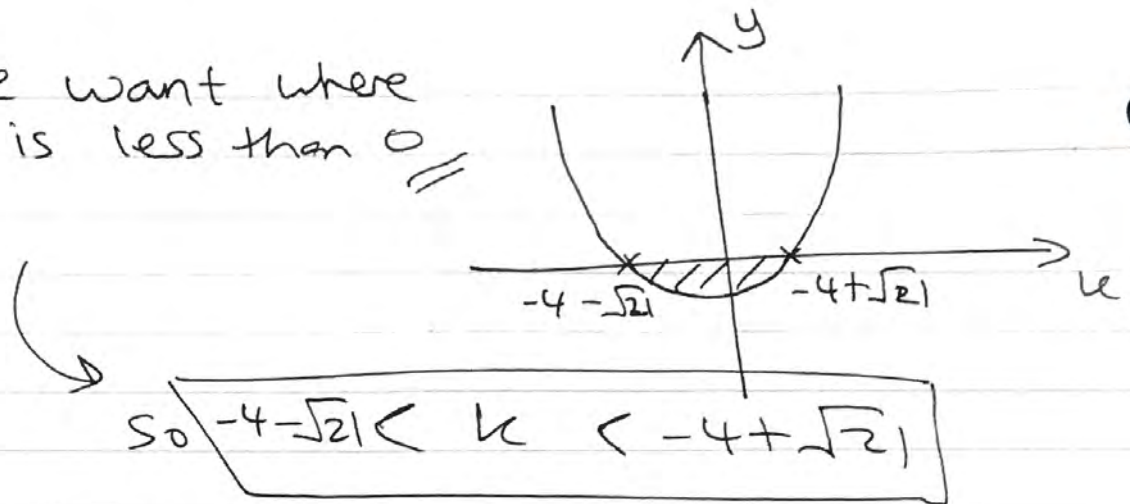 want where
is less than 0
y
-4-√21
-4+√21
k
so -4-√21 < k < -4+√21